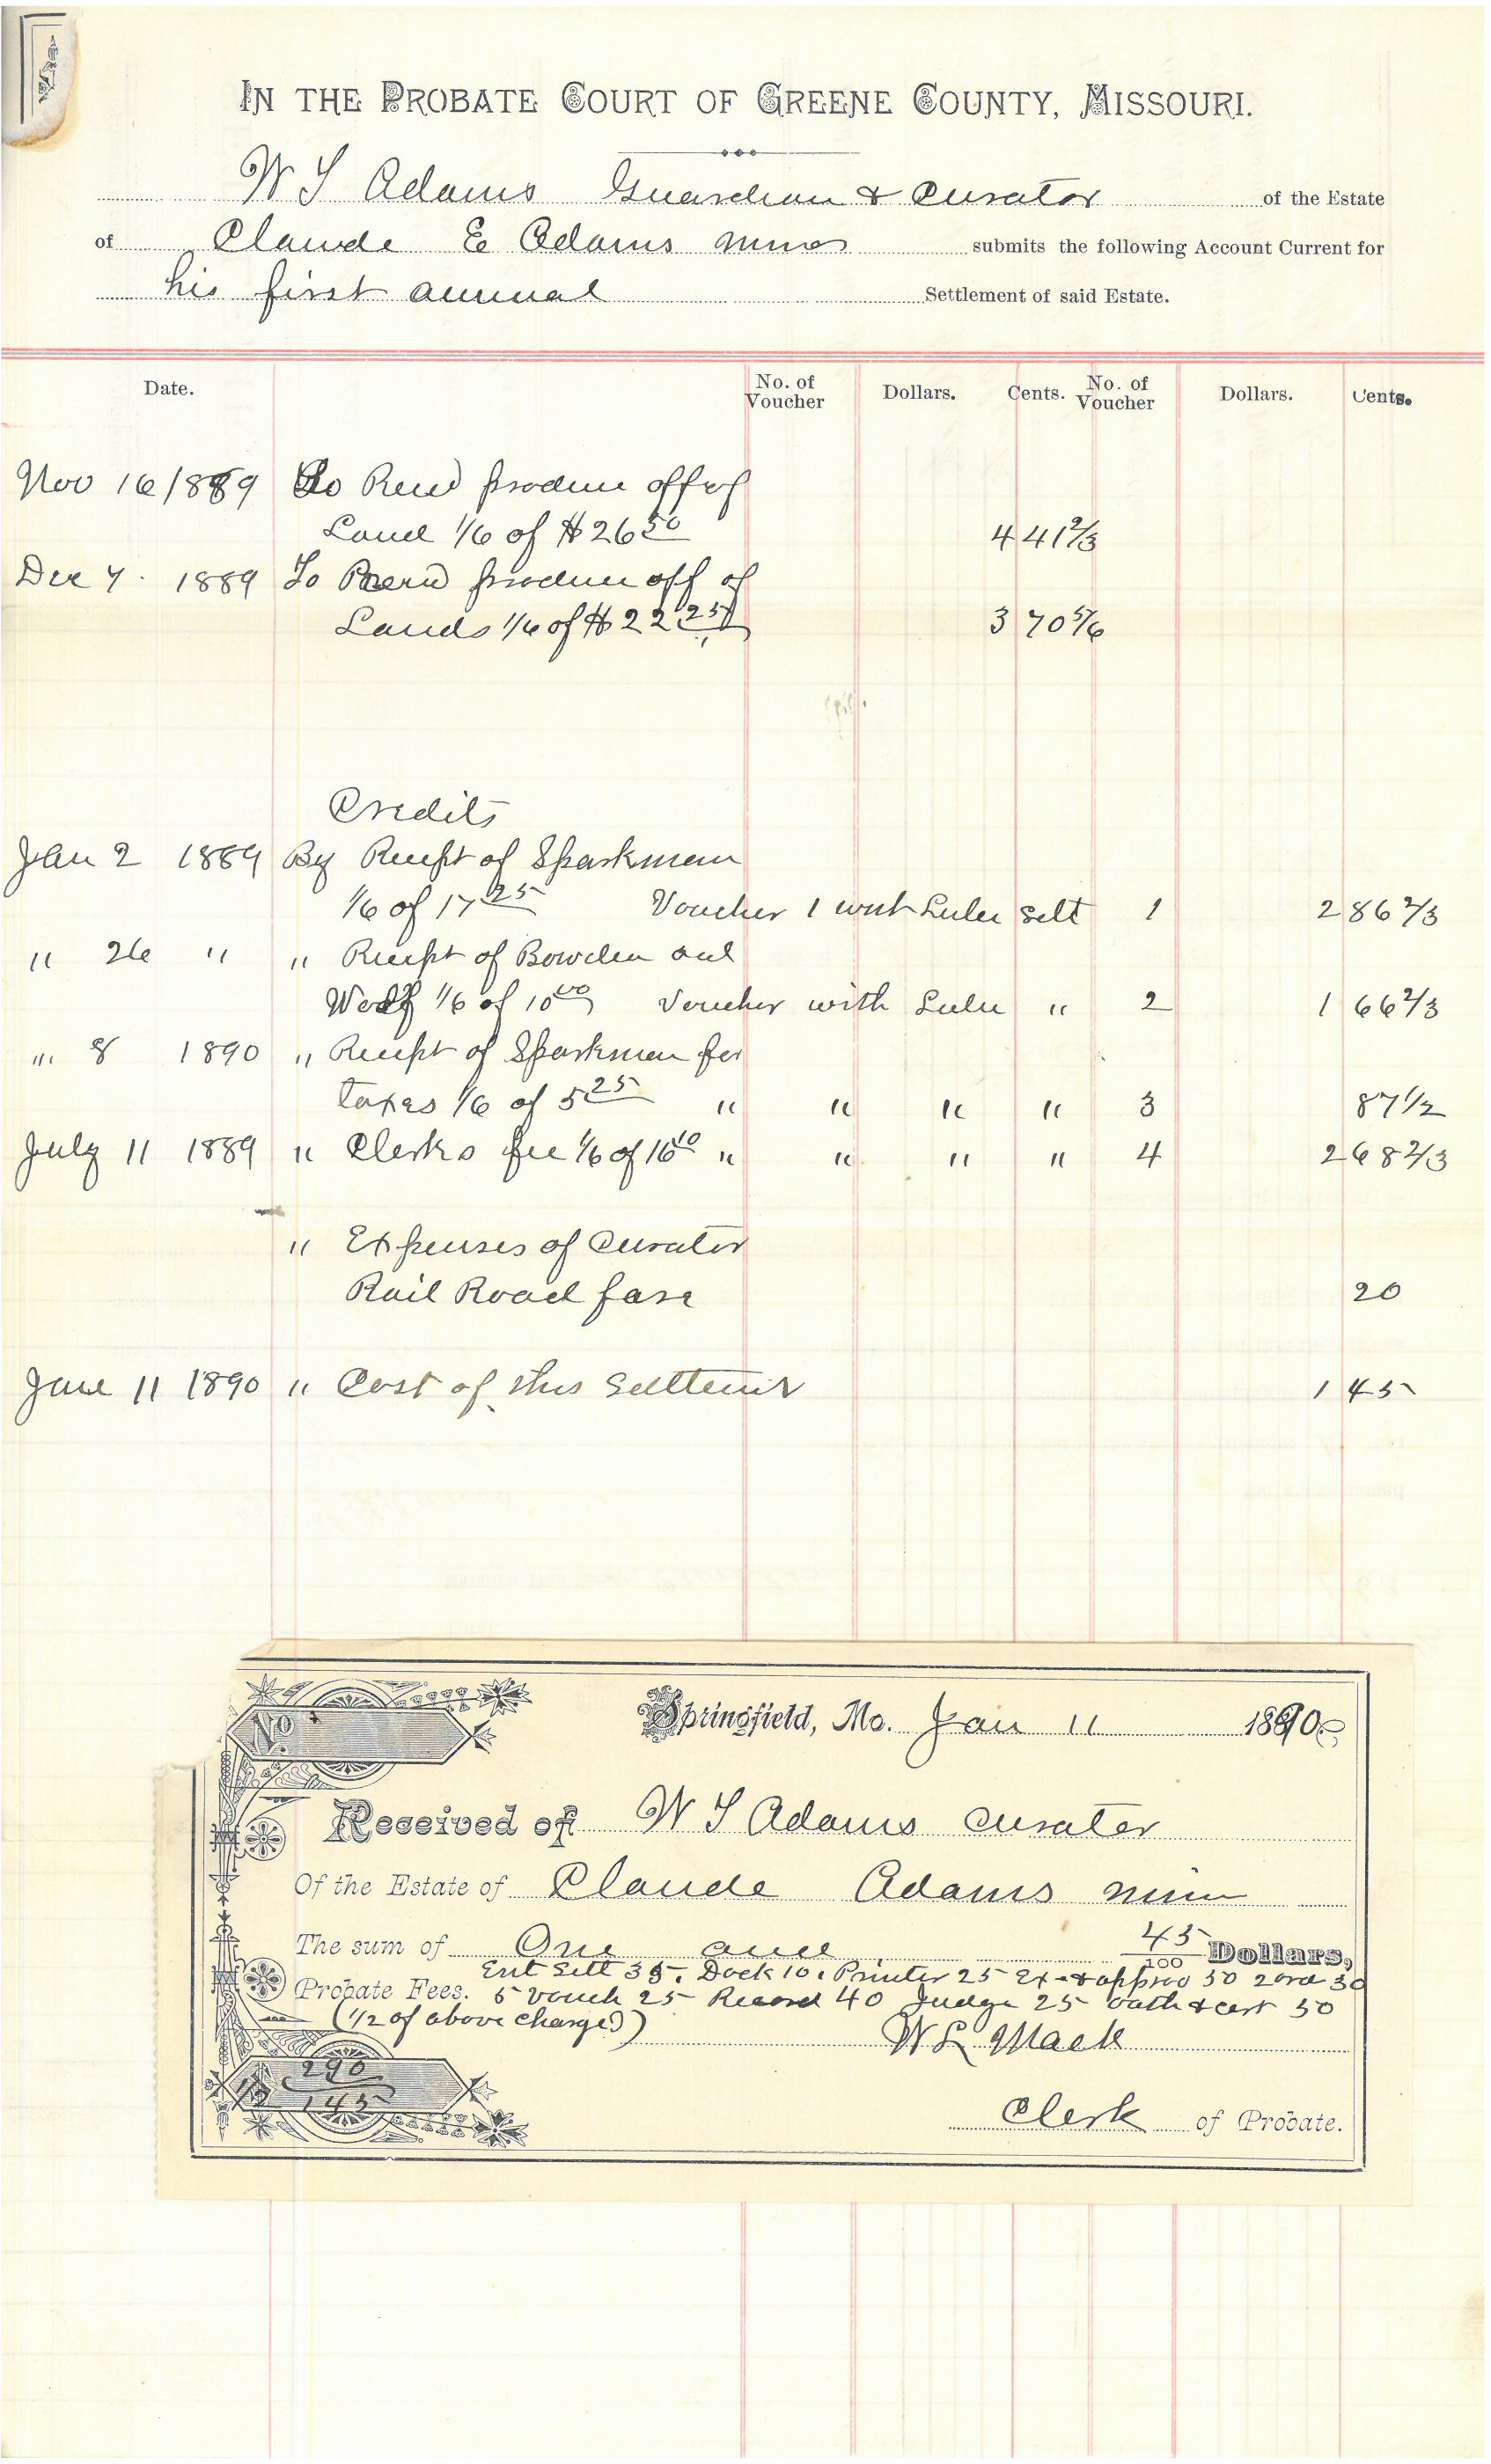 IN THE PROBATE COURT OF GREENE COUNTY, MISSOURI.
W S Adams Guardian & Curator of the Estate
of Claude E Adams minor submits the following Account Current for
his first annual Settlement of said Estate.
Date. No. of Voucher Dollars. Cents. No. of Voucher Dollars. Cents.
Nov 16/1889 To Recd produce off of
Land 1/6 of $26 50 4 41 2/3
Dec 7. 1889 To Recd produce off of
Lands 1/6 of $22 25 3 70 5/6
Credits
Jan 2 1889 By Receipt of Sparkman
1/6 of 17 25 Voucher 1 with Lulu Selt 1 2 86 2/3
" 26 " " Receipt of Bowden and
1/6 of 10 00 Voucher with Lulu " 2 1 66 2/3
" 8 1890 " Receipt of Sparkman for
taxes 1/6 of 5 25 " " " " 3 87 1/2
July 11 1889 " Clerks fee 1/6 of 16 10 " " " " 4 2 68 2/3
" Expenses of Curator
Rail Road fare 20
Jan 11 1890 " Cost of this Settlemt 1 45
No
Springfield, Mo. Jan 11 1890
Received of W S Adams curator
Of the Estate of Claude Adams minor
The sum of One and 45/100 Dollars,
Ent Sett 35. Dock 10. Printer 25 Ex & approv 50 2 ord 30
Probate Fees. 5 vouch 25 Record 40 Judge 25 oath & cert 50
(1/2 of above charges) W L Mack
290
1/2 145
Clerk of Probate.